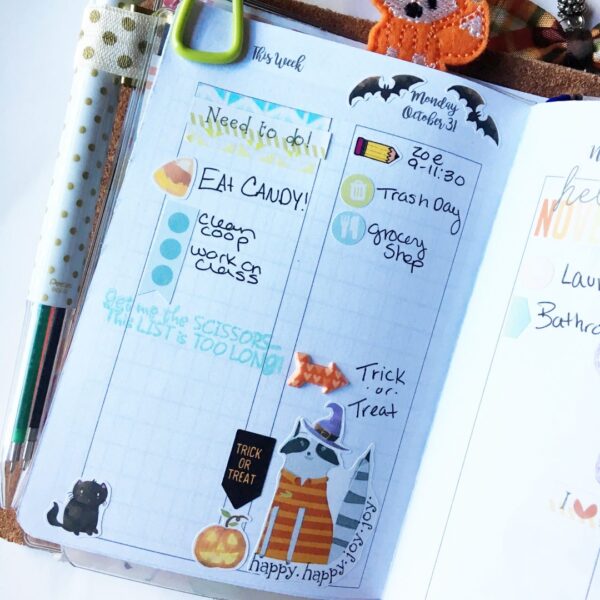 This Week
Need to do!
EAT CANDY!
Clean
COOP
WORK ON
CLASS
Get me the SCISSORS...
This LIST is TOO LONG!
TRICK
OR
TREAT
Monday
October 31
Zoe
9-11:30
Trash Day
grocery
Shop
Trick
or
Treat
happy. happy. joy. joy.
hello
Bathro
I